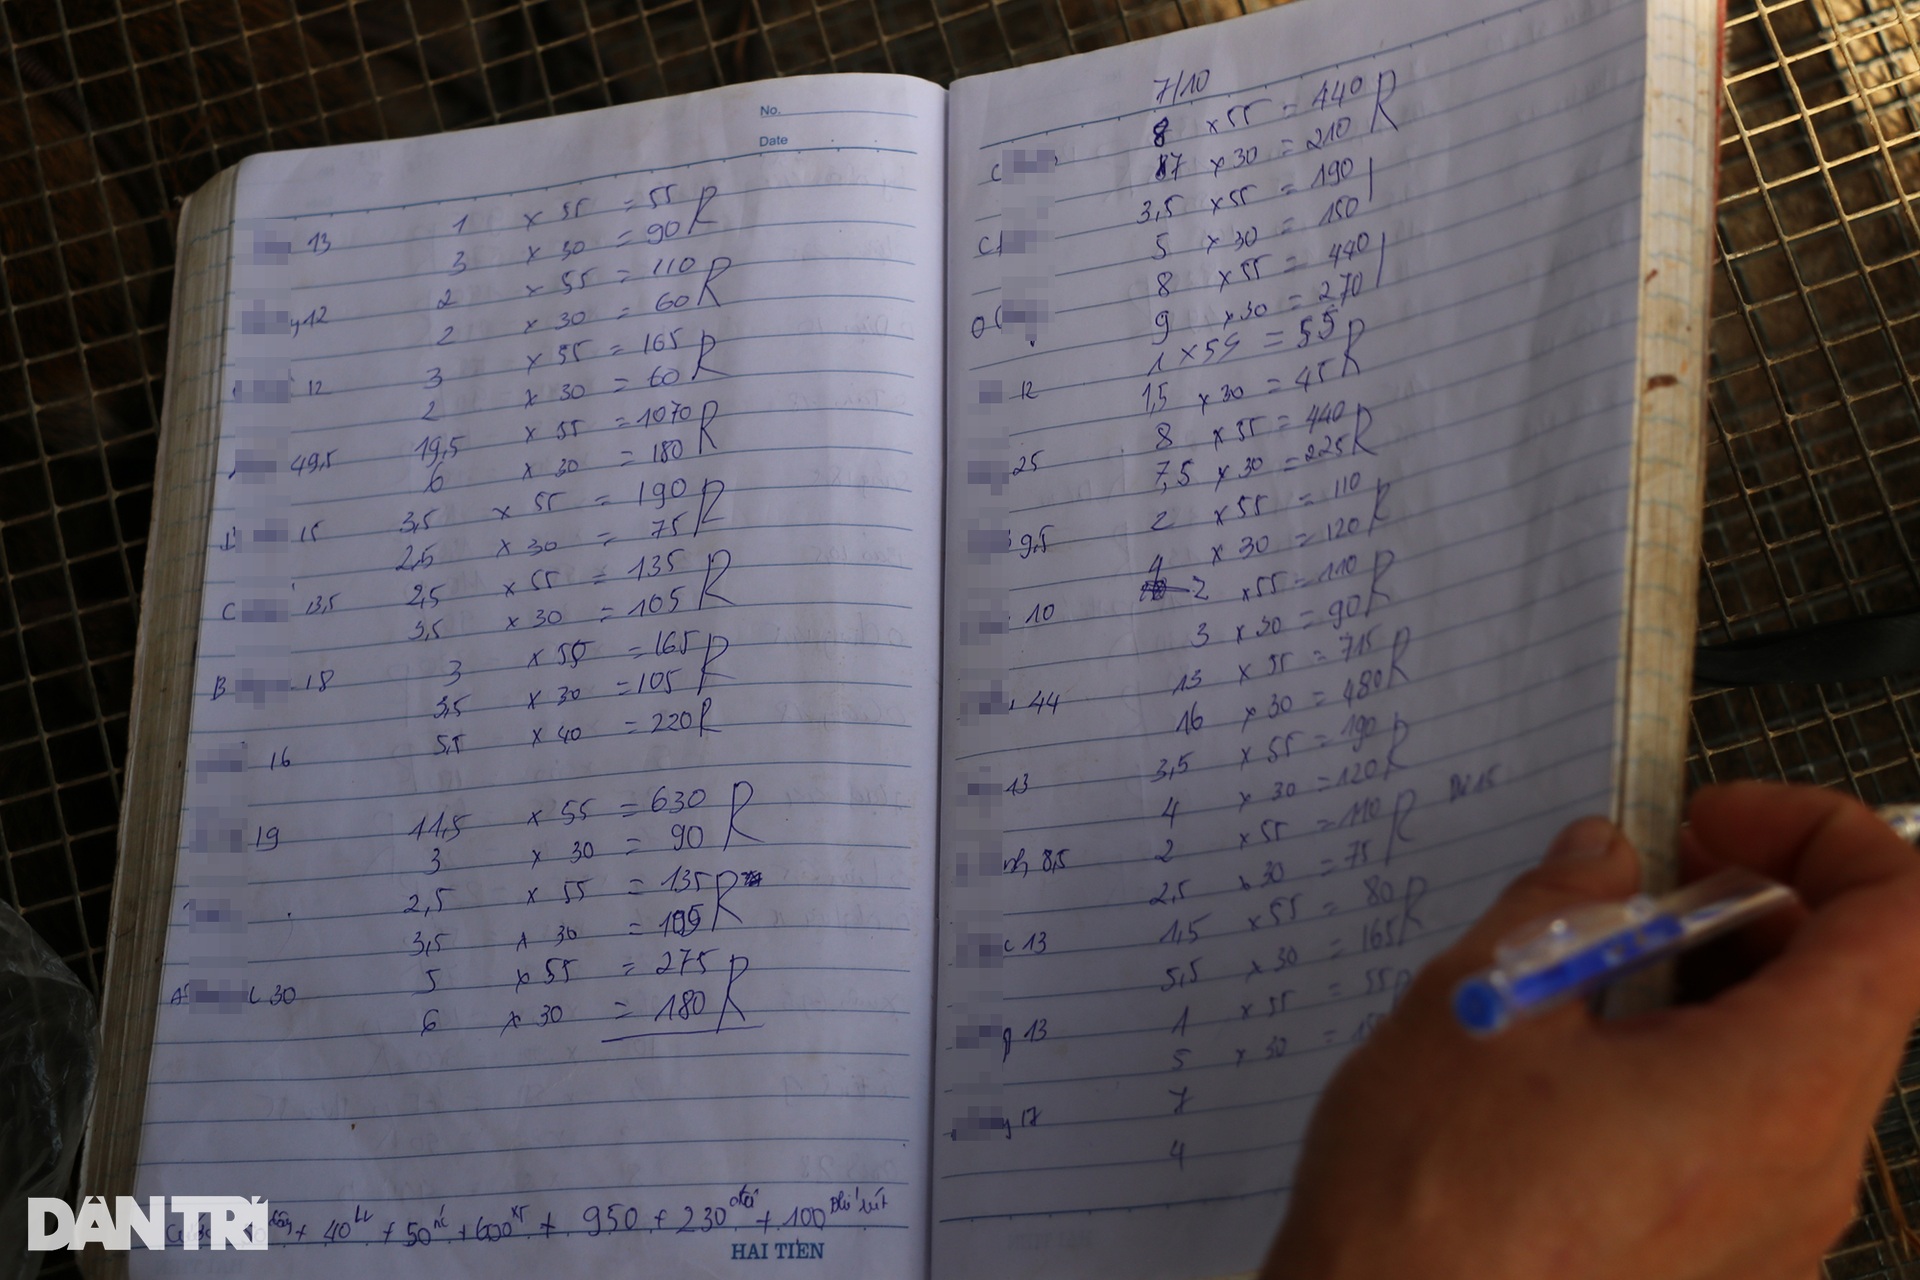 No.
Date
13 1 x 55 = 55 R
3 x 30 = 90
y 12 2 x 55 = 110 R
2 x 30 = 60
12 3 x 55 = 165 R
2 x 30 = 60
49,5 19,5 x 55 = 1070 R
6 x 30 = 180
15 3,5 x 55 = 190 R
2,5 x 30 = 75
C 13,5 2,5 x 55 = 135 R
3,5 x 30 = 105
B 18 3 x 55 = 165 R
3,5 x 30 = 105
16 5,5 x 40 = 220 R
19 11,5 x 55 = 630 R
3 x 30 = 90
2,5 x 55 = 135 R
3,5 x 30 = 105
30 5 x 55 = 275 R
6 x 30 = 180
+ 40 + 50 + 600 + 950 + 230 + 100
HAI TIEN
7/10
C 8 x 55 = 440 R
7 x 30 = 210
C 3,5 x 55 = 190
5 x 30 = 150
O 8 x 55 = 440
9 x 30 = 270
12 1 x 55 = 55 R
1,5 x 30 = 45
25 8 x 55 = 440 R
7,5 x 30 = 225
9,5 2 x 55 = 110 R
4 x 30 = 120
10 2 x 55 = 110 R
3 x 30 = 90
44 13 x 55 = 715 R
16 x 30 = 480
13 3,5 x 55 = 190 R
4 x 30 = 120
nh 8,5 2 x 55 = 110 R
2,5 x 30 = 75
c 13 1,5 x 55 = 80 R
5,5 x 30 = 165
g 13 1 x 55 = 55 R
5 x 30 =
y 17 7
4
DÂN TRÍ